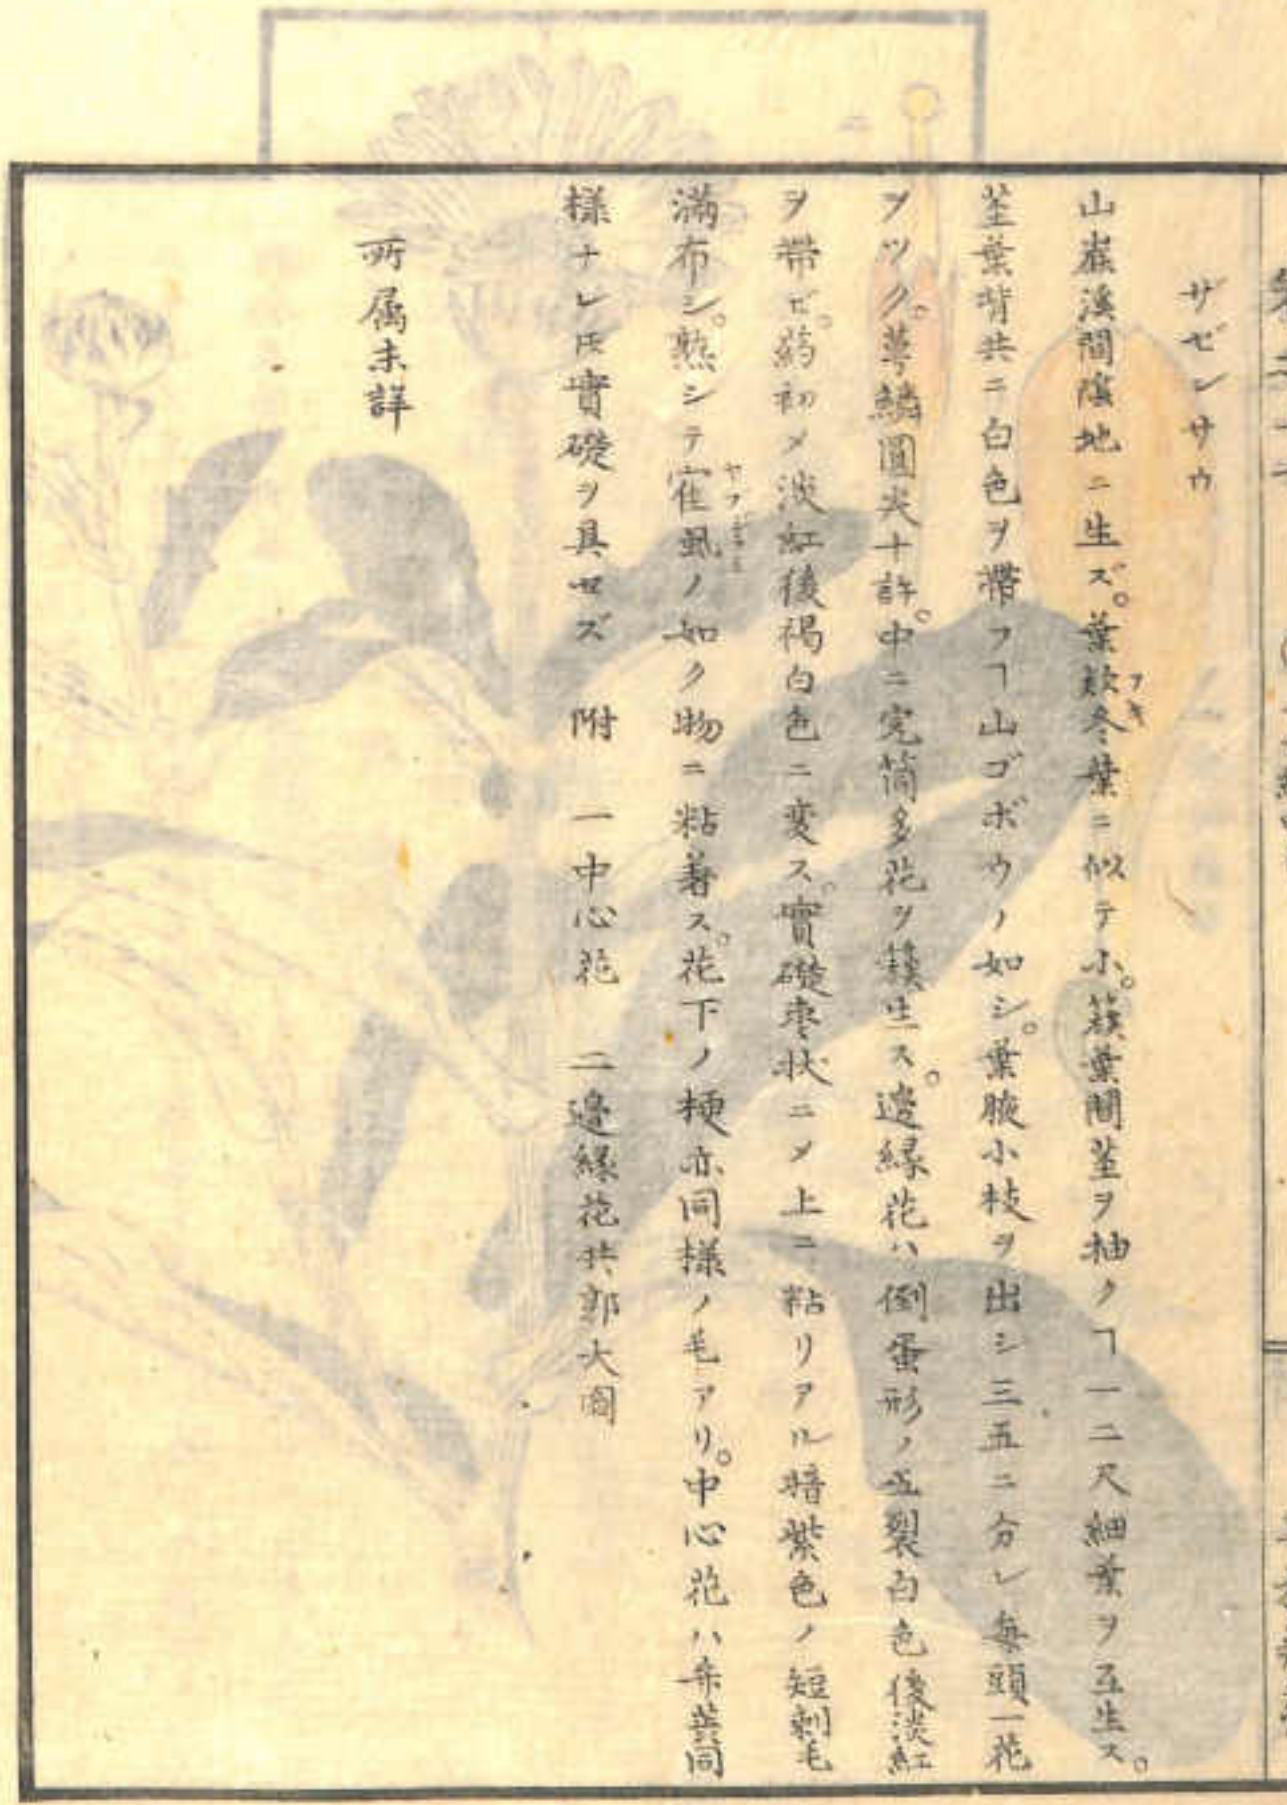 サゼンサウ
山崖溪間陰地ニ生ズ。葉款冬葉ニ似テ小。簇葉間莖ヲ抽クヿ一二尺細葉ヲ互生ス。
フキ
莖葉背共ニ白色ヲ帶フヿ山ゴボウノ如シ。葉腋小枝ヲ出シ三五ニ分レ每頭一花
ヲツク。萼鱗圓尖十許。中ニ完筒多花ヲ簇生ス。邊緣花ハ倒蛋形ノ五裂白色後淡紅
ヲ帶ビ。葯初メ淡紅後褐白色ニ変ス。實礎棗状ニメ上ニ粘リアル暗紫色ノ短刺毛
滿布シ。熟シテ寉虱ノ如ク物ニ粘着ス。花下ノ梗亦同樣ノ毛アリ。中心花ハ弁蕋同
ヤブジラミ
樣ナレ𪜈實礎ヲ具セズ 附 一中心花 二邊緣花共郭大圖
所属未詳